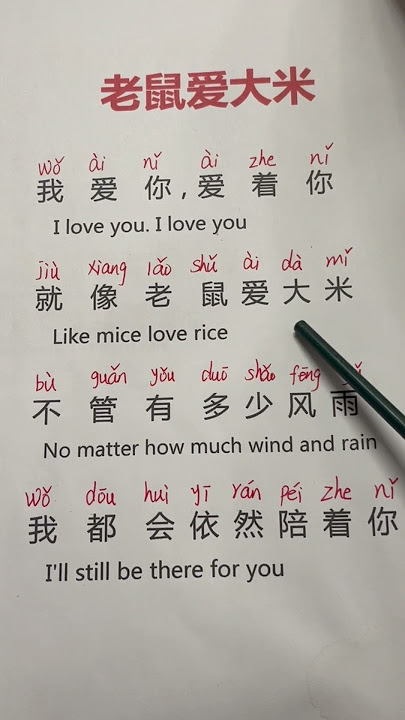 老鼠爱大米
wǒ ài nǐ ài zhe nǐ
我爱你,爱着你
I love you. I love you
jiù xiàng lǎo shǔ ài dà mǐ
就像老鼠爱大米
Like mice love rice
bù guǎn yǒu duō shǎo fēng
不管有多少风雨
No matter how much wind and rain
wǒ dōu huì yī rán péi zhe nǐ
我都会依然陪着你
I'll still be there for you